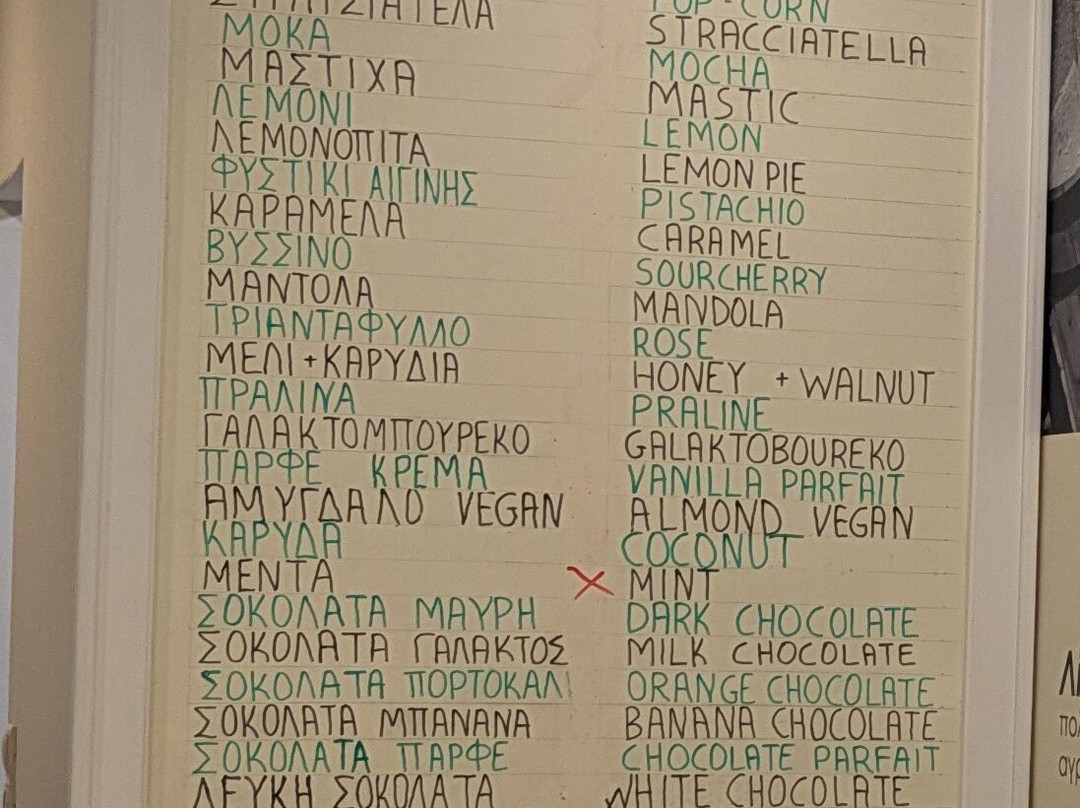 POP-CORN
ΣΤΡΑΤΣΙΑΤΕΛΑ STRACCIATELLA
ΜΟΚΑ MOCHA
ΜΑΣΤΙΧΑ MASTIC
ΛΕΜΟΝΙ LEMON
ΛΕΜΟΝΟΠΙΤΑ LEMON PIE
ΦΥΣΤΙΚΙ ΑΙΓΙΝΗΣ PISTACHIO
ΚΑΡΑΜΕΛΑ CARAMEL
ΒΥΣΣΙΝΟ SOURCHERRY
ΜΑΝΤΟΛΑ MANDOLA
ΤΡΙΑΝΤΑΦΥΛΛΟ ROSE
ΜΕΛΙ + ΚΑΡΥΔΙΑ HONEY + WALNUT
ΠΡΑΛΙΝΑ PRALINE
ΓΑΛΑΚΤΟΜΠΟΥΡΕΚΟ GALAKTOBOUREKO
ΠΑΡΦΕ ΚΡΕΜΑ VANILLA PARFAIT
ΑΜΥΓΔΑΛΟ VEGAN ALMOND VEGAN
ΚΑΡΥΔΑ COCONUT
ΜΕΝΤΑ X MINT
ΣΟΚΟΛΑΤΑ ΜΑΥΡΗ DARK CHOCOLATE
ΣΟΚΟΛΑΤΑ ΓΑΛΑΚΤΟΣ MILK CHOCOLATE
ΣΟΚΟΛΑΤΑ ΠΟΡΤΟΚΑΛΙ ORANGE CHOCOLATE
ΣΟΚΟΛΑΤΑ ΜΠΑΝΑΝΑ BANANA CHOCOLATE
ΣΟΚΟΛΑΤΑ ΠΑΡΦΕ CHOCOLATE PARFAIT
ΛΕΥΚΗ ΣΟΚΟΛΑΤΑ WHITE CHOCOLATE